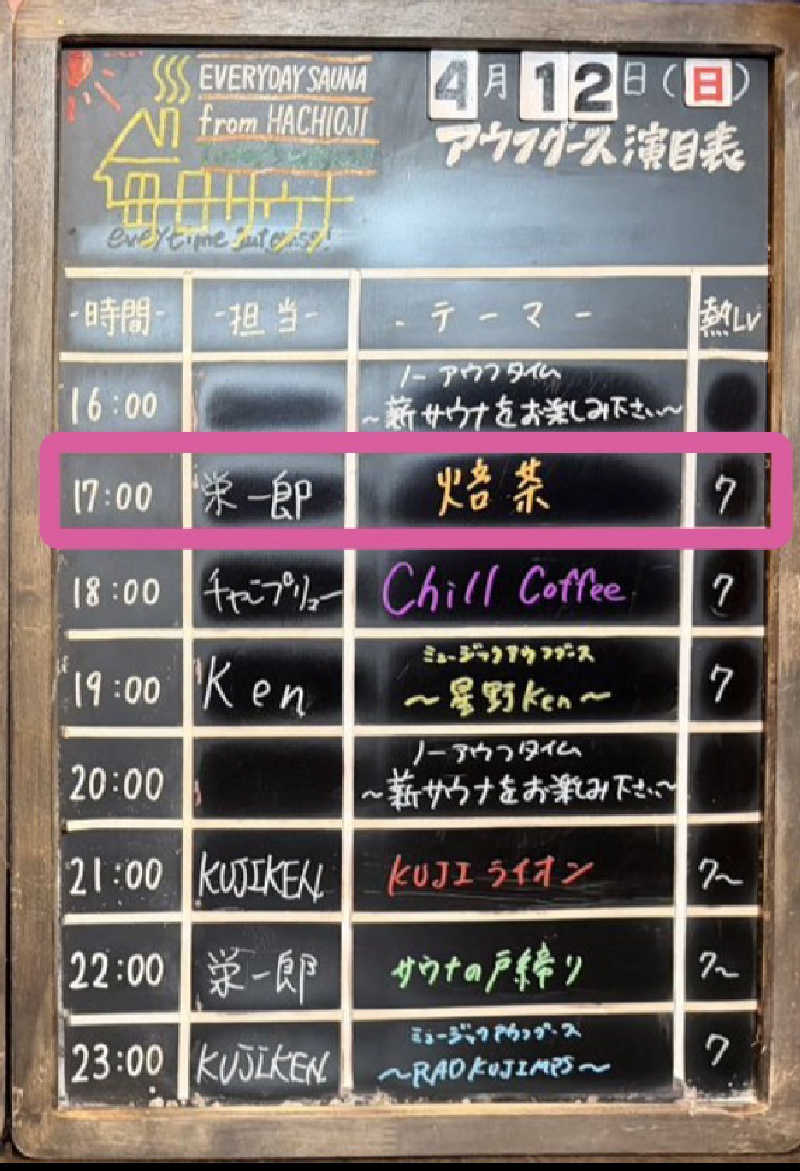 EVERYDAY SAUNA
from HACHIOJI
4月12日(日)
アウフグース演目表
-時間- -担当- -テーマ- 熱LV
16:00 ノーアウフタイム
~薪サウナをお楽しみ下さい~
17:00 栄一郎 焙茶 7
18:00 チャンプリュー Chill Coffee 7
19:00 Ken ミュージックアウフグース
~星野Ken~ 7
20:00 ノーアウフタイム
~薪サウナをお楽しみ下さい~
21:00 KUJIKEN KUJIライオン 7~
22:00 栄一郎 サウナの戸締り 7~
23:00 KUJIKEN ミュージックアウフグース
~RADKUJIMPS~ 7